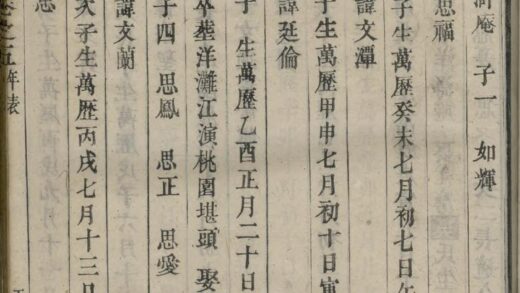 庵 子一 如輝
思福
子生萬歷癸未七月初七日午
諱文潭
子生萬歷甲申七月初十日寅
諱廷倫
子 生萬歷乙酉正月二十日
卒塟洋灘江演桃園堪頭 娶
子四 思鳳 思正 思愛
諱文蘭
子生萬歷丙戌七月十三日
之五